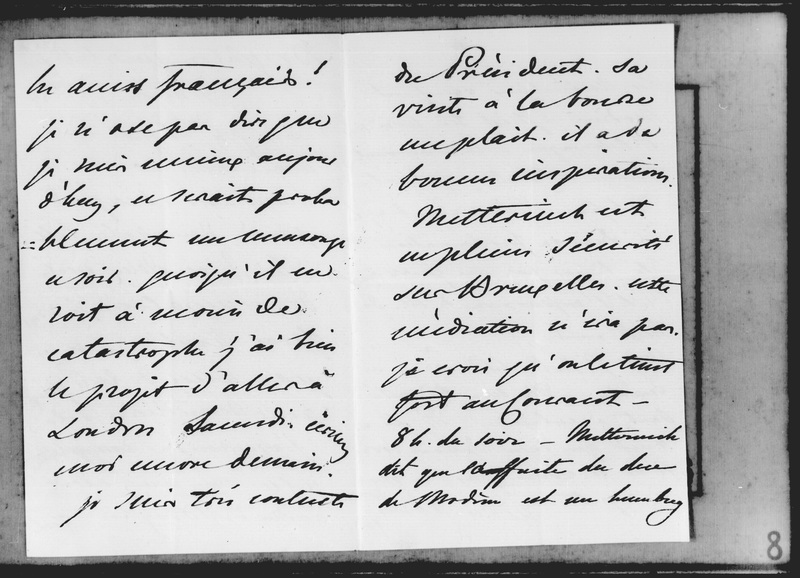 les aussi français !
je n'ose pas dire que
je suis mieux aujour
d'huy, ce serait proba
=blement un mensonge
ce soir. quoiqu'il en
soit à moins de
catastrophe j'ai bien
le projet d'aller à
Londres Samedi. écrivez
moi encore demain.
je suis très contente
du Président. sa
visite à la bourse
me plait. il a de
bonnes inspirations.
Metternich est
en pleine sécurité
sur Bruxelles. cette
médiation n'ira pas.
je crois qu'on le tient
fort au Courant —
8 h. du soir — Metternich
dit que la fuite du duc
de Modène est un humbug
8